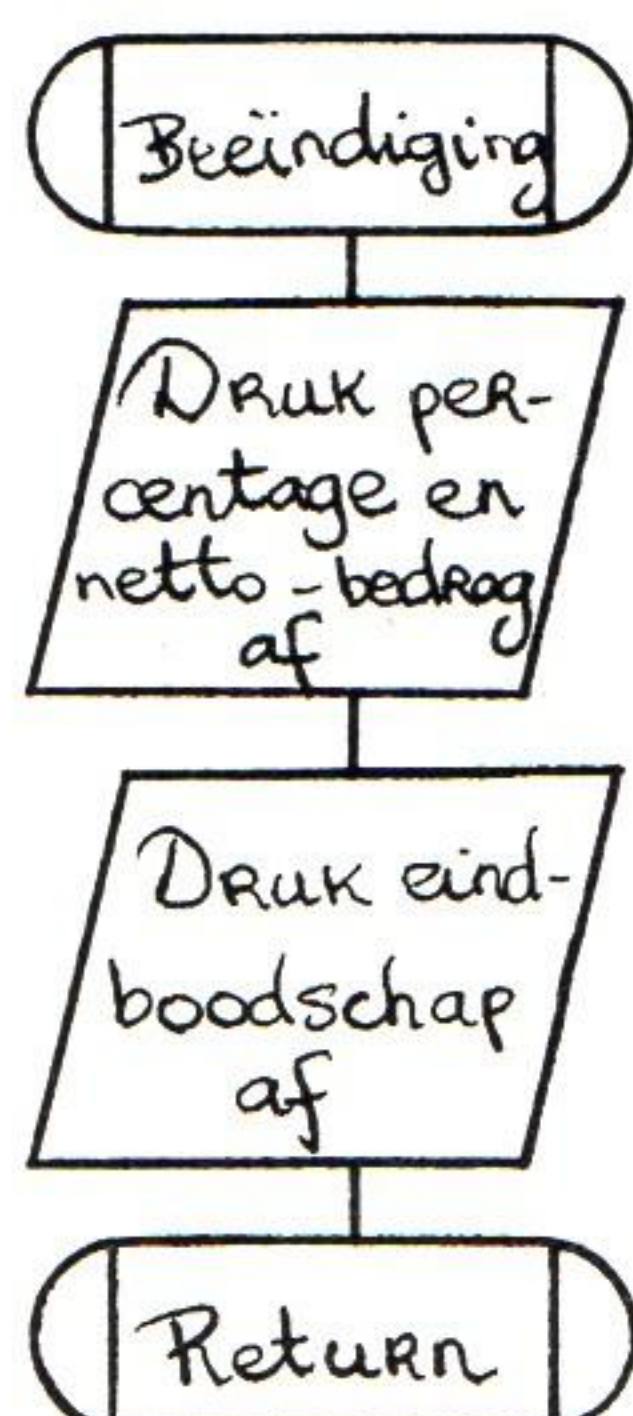 Beëindiging
Druk per-
centage en
netto-bedrag
af
Druk eind-
boodschap
af
Return